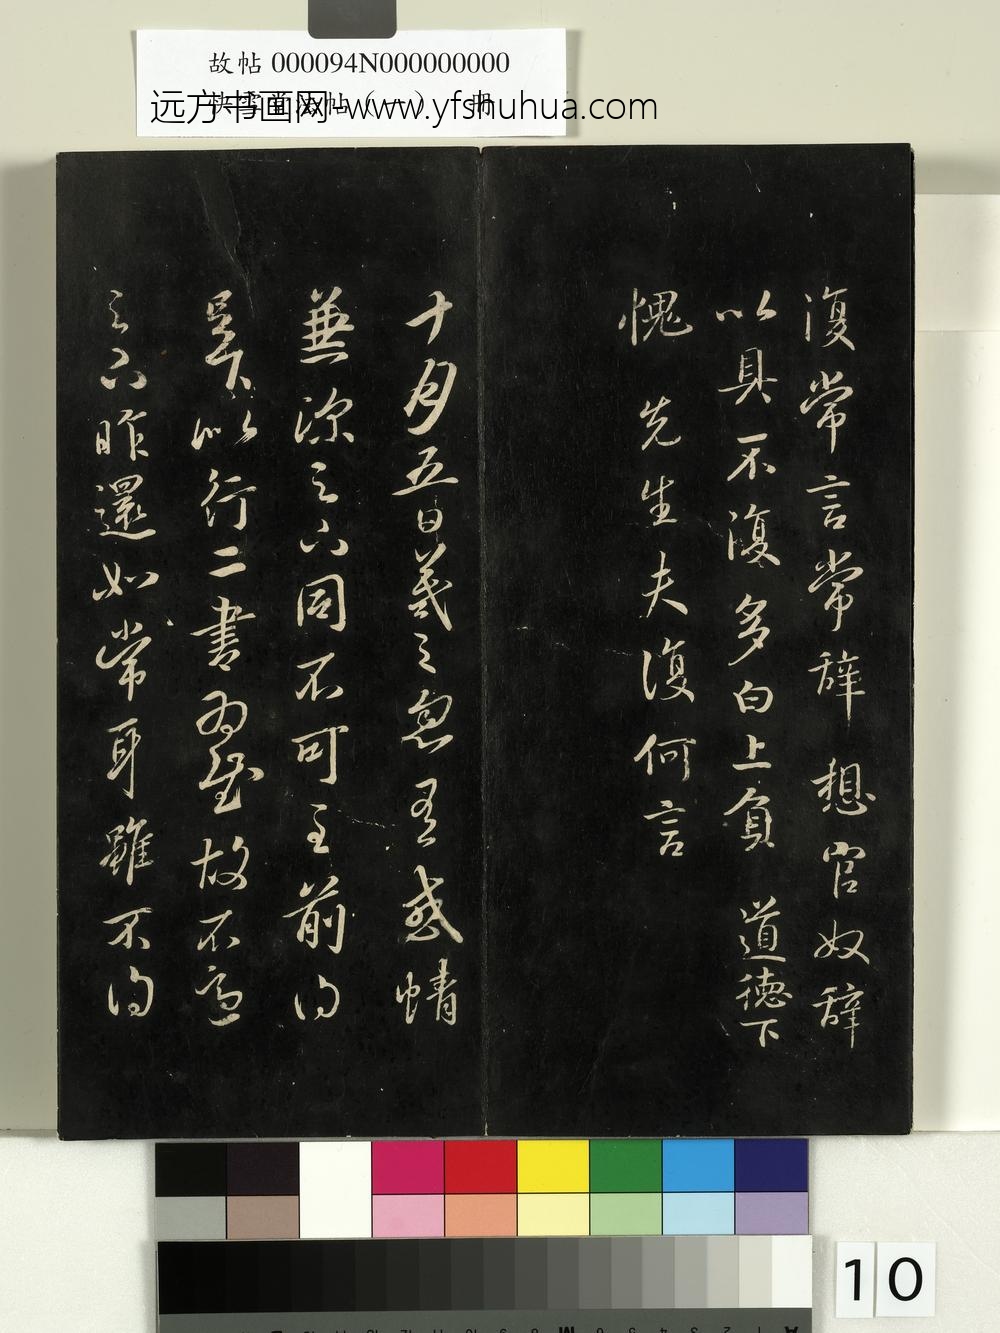 故帖 000094N000000000
快雪堂法帖（一） 册
远方书画网-www.yfshuhua.com
復常言常辞想官奴辞
以具不復多白上負 道德下
愧 先生夫復何言
十月五日羲之忽感情
兼深之同不可言前得
足下以行二書為慰故不
之昨還如常耳雖不得
10